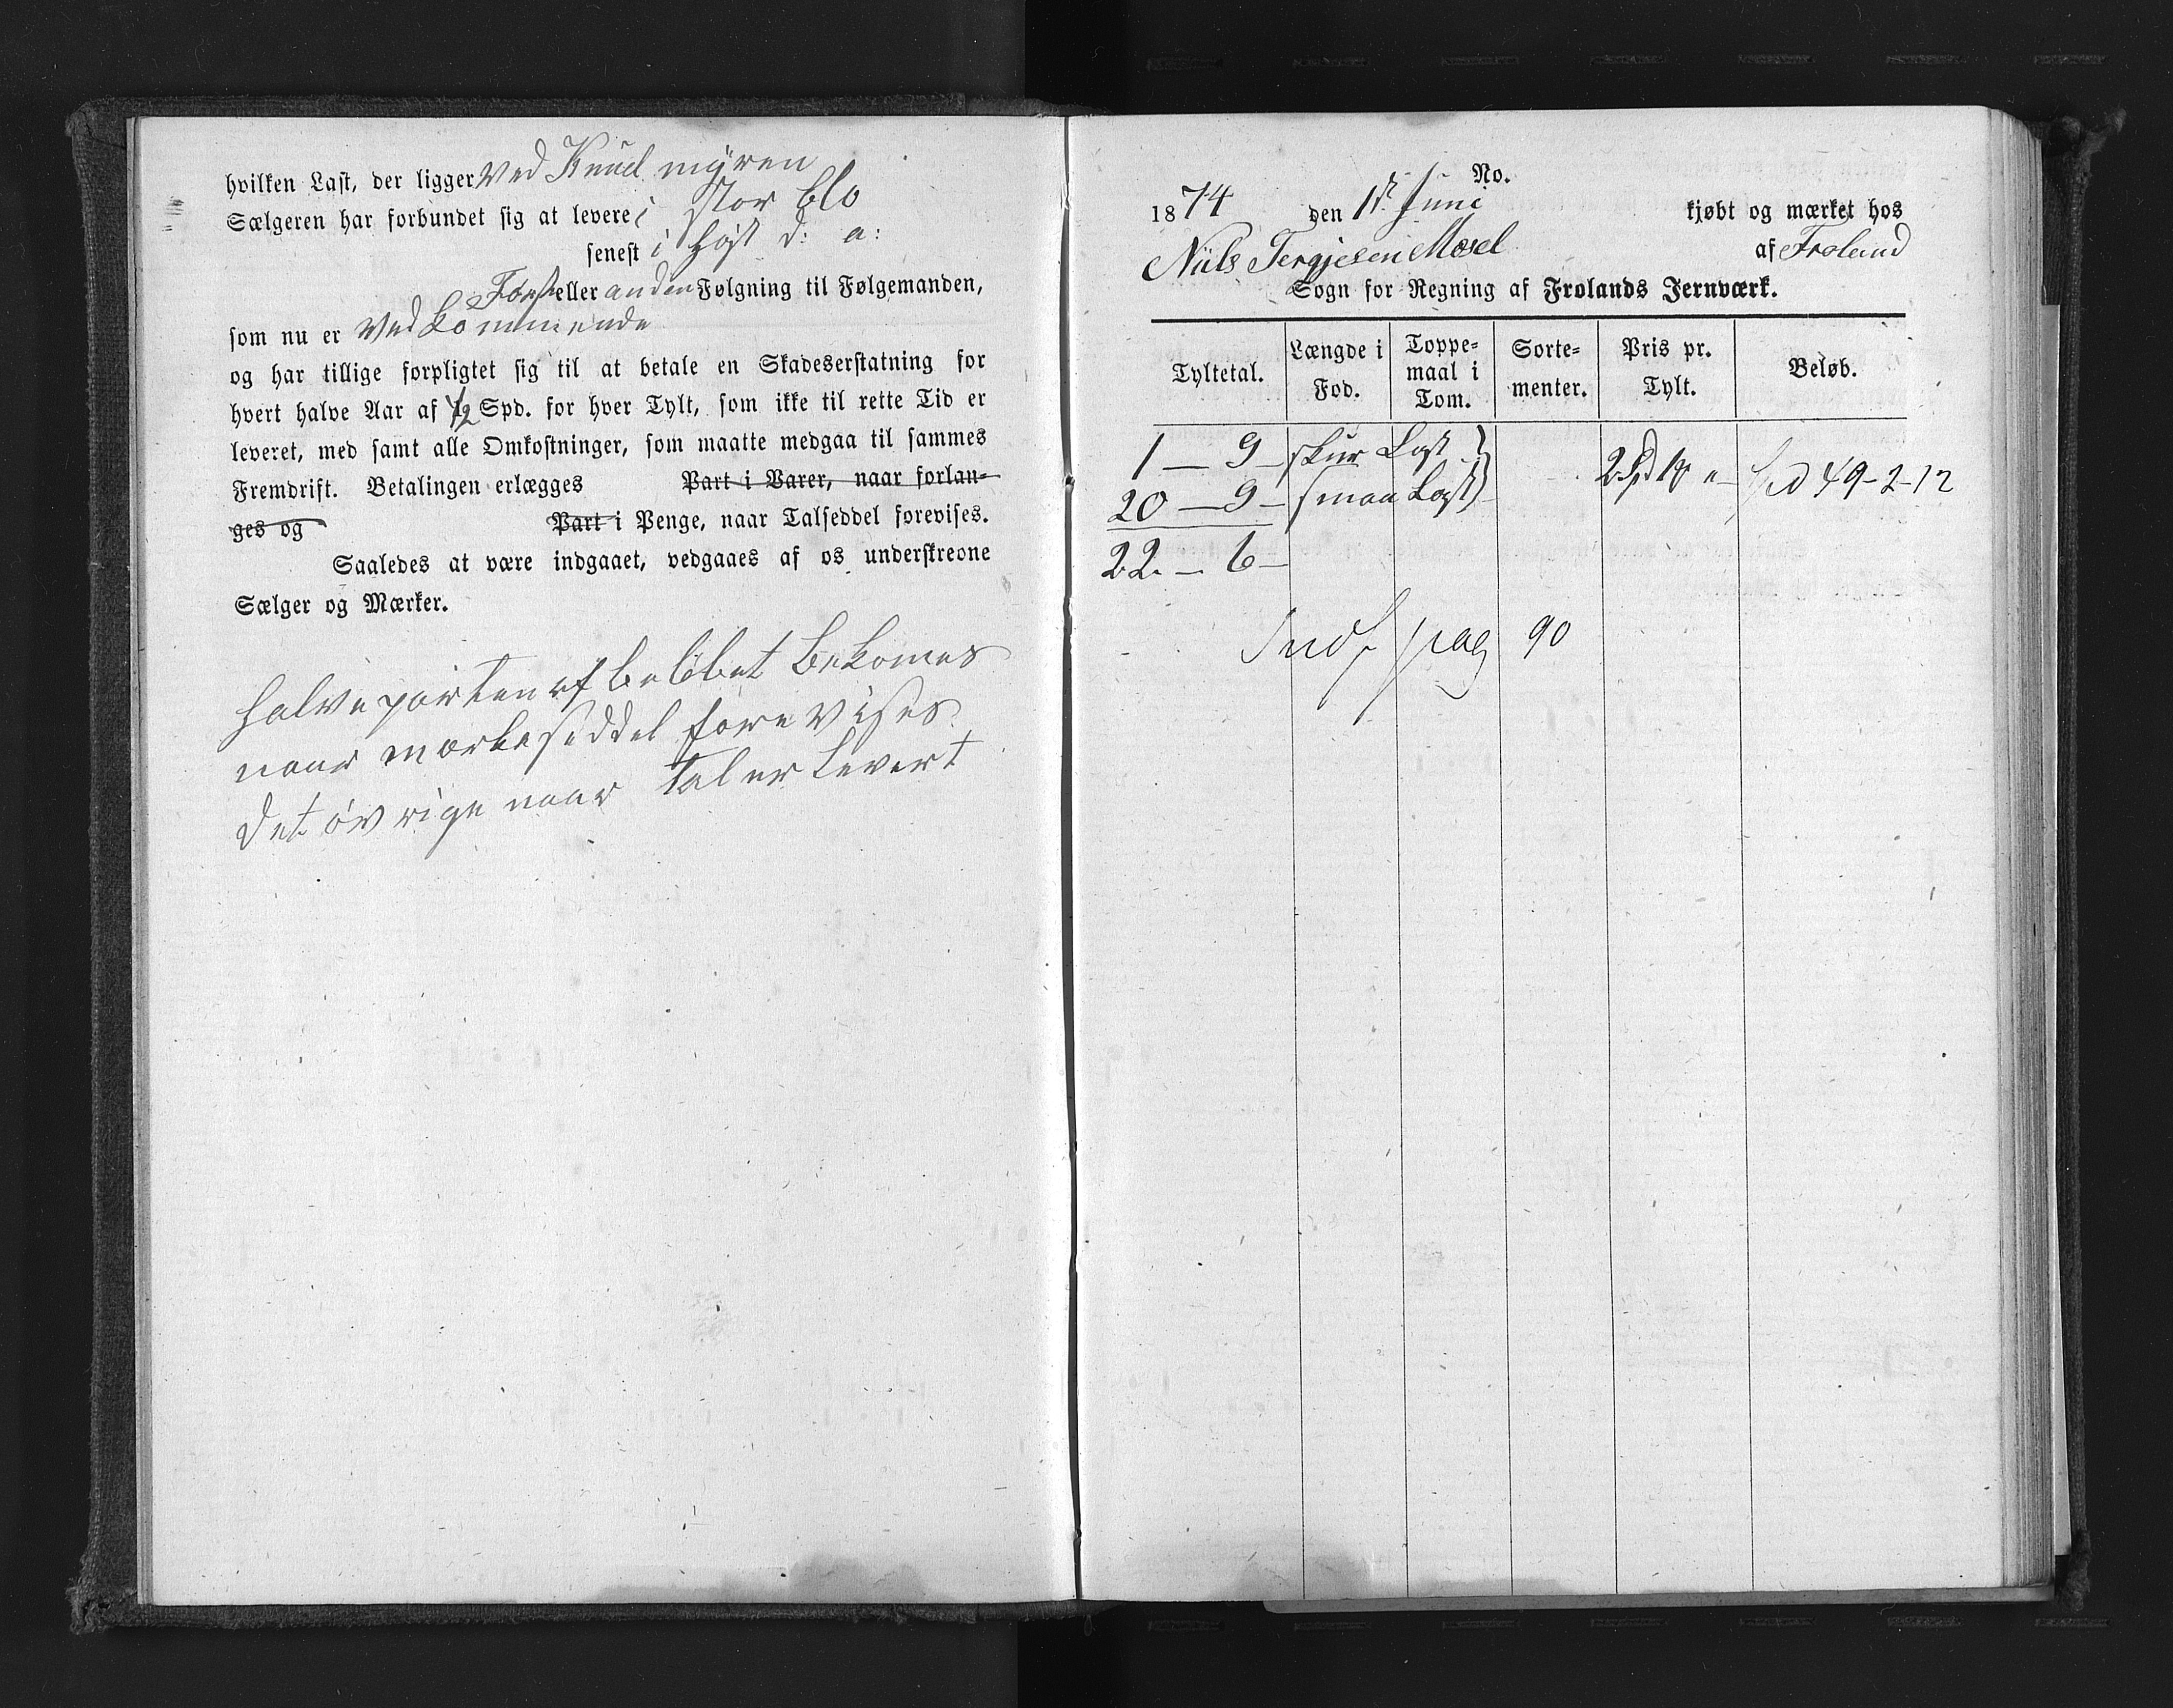 hvilken Last, der ligger ved Knud myren
Sælgeren har forbundet sig at levere i stor blo
senest i høst d: a:
Først eller anden Følgning til Følgemanden,
som nu er Vedkommende
og har tillige forpligtet sig til at betale en Skadeserstatning for
hvert halve Aar af 1/2 Spd. for hver Tylt, som ikke til rette Tid er
leveret, med samt alle Omkostninger, som maatte medgaa til sammes
Fremdrift. Betalingen erlægges Part i Varer, naar forlan-
ges og Part i Penge, naar Talseddel forevises.
Saaledes at være indgaaet, vedgaaes af os underskrevne
Sælger og Mærker.
halve parten af beløbet bekomes
naar mærkeseddel forevises
det øvrige naar Tal er Levert
No.
1874 den 1st Juni kjøbt og mærket hos
Niels Tergjesen Mosel af Froland
Sogn for Regning af Frolands Jernværk.
Tyltetal. Længde i Fod. Toppe-maal i Tom. Sorte-menter. Pris pr. Tylt. Beløb.
1 — 9 – skur Last
20 — 9 – smaa Last 2 Spd Spd 49-2-12
22 — 6 –
Indf pag 90